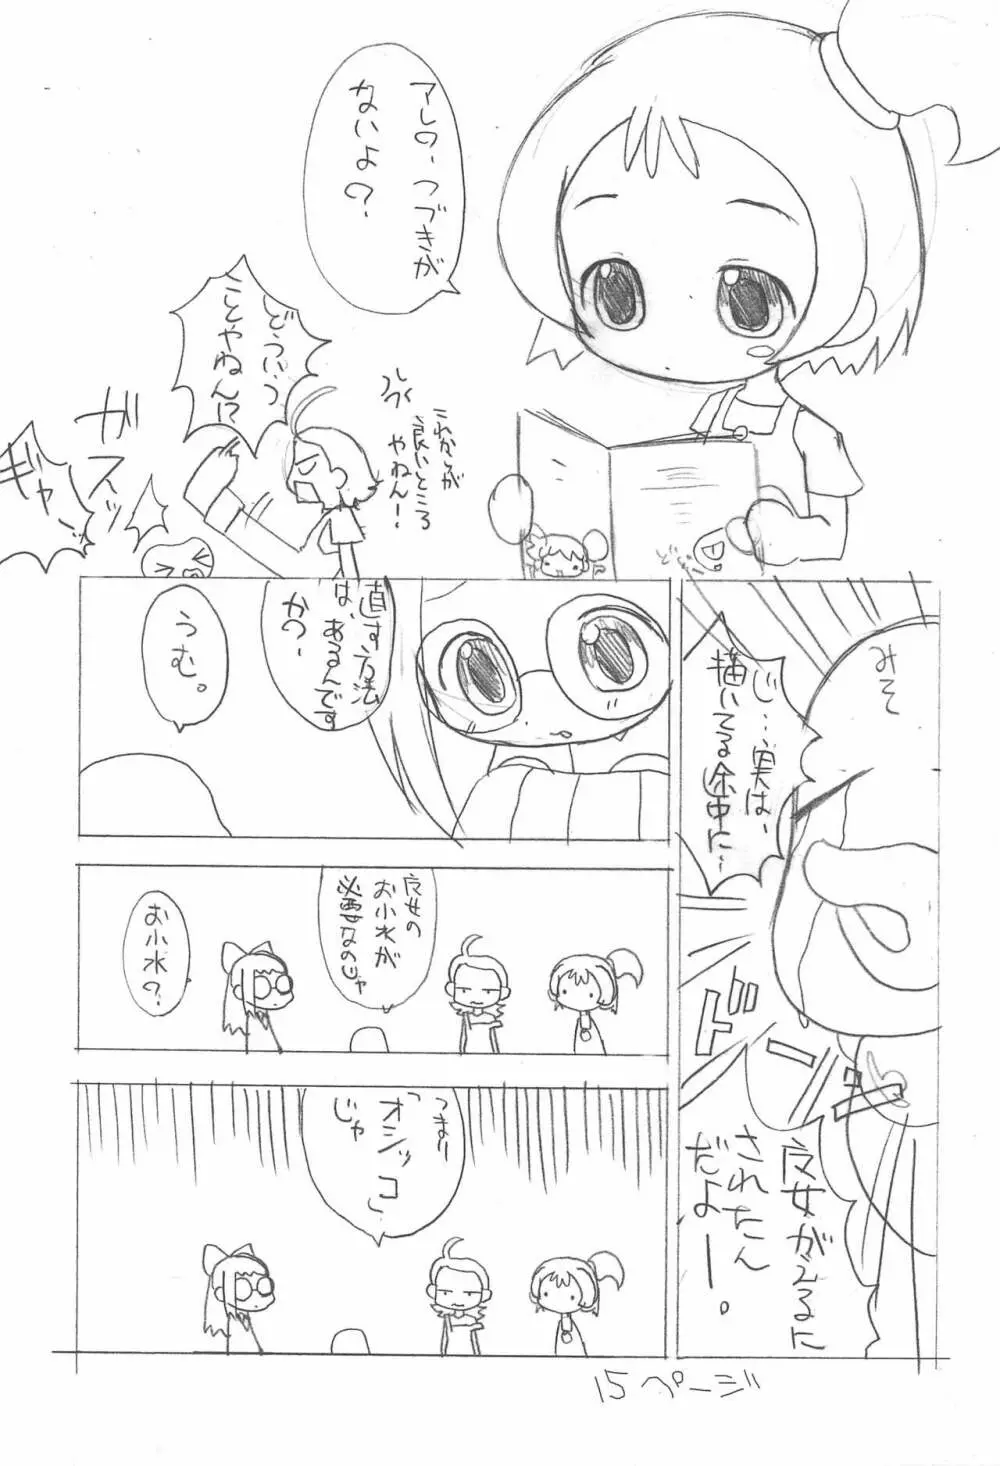 アレの、つづきが
ないよ?
これからが
良いところ
やねん!
どういう
ことやねん!?
ガスッ
ギャー
みそ
じ…実は、
描いてる途中に…
ドドーン
魔女がえるに
されたん
だよー。
直す方法
は、あるんです
か?
うむ。
魔女の
お小水が
必要なのじゃ
お小水?
つまり
「オシッコ」
じゃ
15ページ